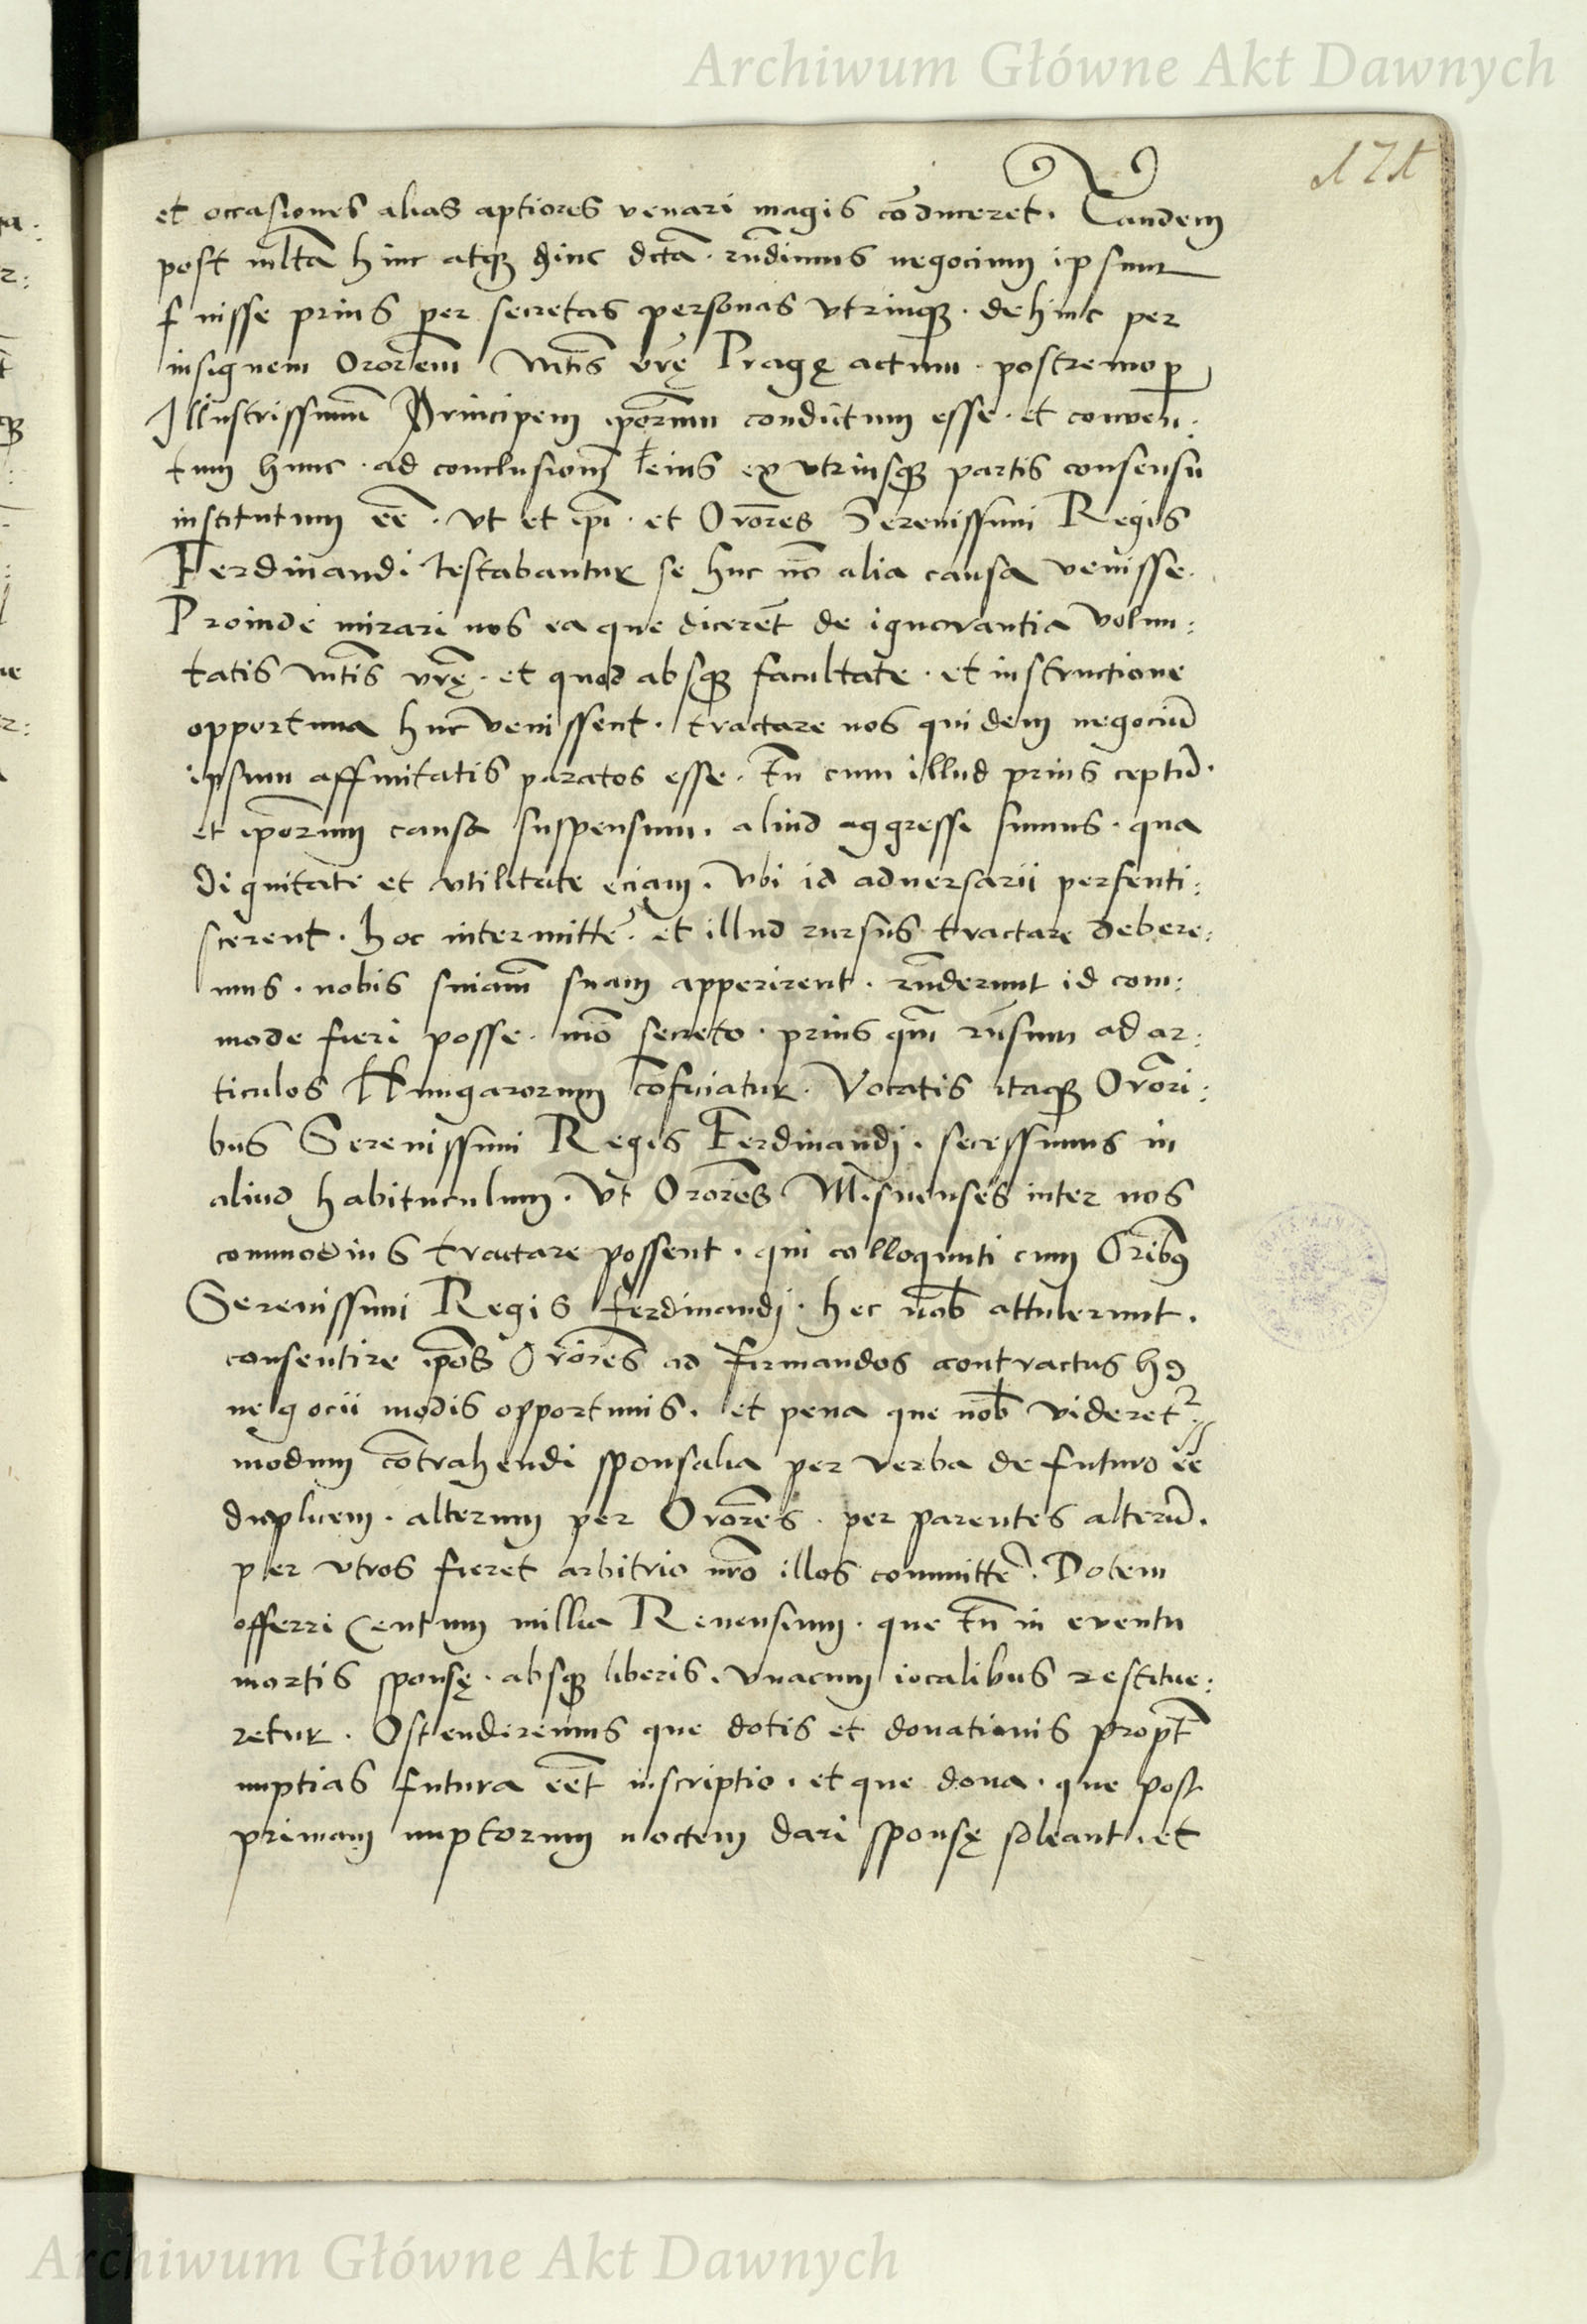 Archiwum Główne Akt Dawnych
171
et occasiones alias aptiores venari magis cōduceret. Tandem
post mltā hinc atq̨ hinc dctā. rn̄dimus negocium ipsum
fuisse prius per secretas personas vtrinq̨. dehinc per
insignem Ororem̄ Mtis vrę Pragę actum. postremo p
Illustrissimū Principem ipōrum conductum esse. et conven:
tum hunc. ad conclusionē eius ex vtriusq̨ partis consensu
institutum eē. vt et ipī. et Orōres Serenissimi Regis
Ferdinandi testabantur se huc nō alia causa venisse.
Proinde mirari nos ea que dicerēt de ignorantia volun:
tatis Mtis vrę. et quod absq̨ facultate. et instructione
opportuna huc venissent. tractare nos quidem negociū
ipsum affinitatis paratos esse. tn̄ cum illud prius ceptū.
et ipōrum causa suspensum. aliud aggressi sumus. qua
dignitate et vtilitate eciam. vbi id adversarii persenti:
scerent. hoc intermitte. et illud rursus tractare debere:
mus. nobis sniam̄ suam apperirent. rn̄derunt id com:
mode fieri posse. mō secreto. prius qm̄ rn̄sum ad ar:
ticulos Hungarorum cōficiatur. Vocatis itaq̨ Orōri:
bus Serenissimi Regis Ferdinandi. secessimus in
aliud habituculum. vt Orōres Misnenses inter nos
commodius tractare possent. qui colloquuti cum Orib9
Serenissimi Regis Ferdinandi. hec nob̄ attulerunt.
consentire ipōs Orōres ad firmandos contractus h9
negocii modis opportunis. et pena que nob̄ videret
modum cōtrahendi sponsalia per verba de futuro eē
duplicem. alterum per Orōres. per parentes alterū.
per vtros fieret arbitrio nrō illos committe. Dotem
offerri Centum millia Renensium. que tn̄ in eventu
mortis sponsę. absq̨ liberis. vnacum iocalibus restitue:
retur. Ostenderemus que dotis et donationis propt̄
nuptias futura eēt inscriptio. et que dona. que post
primam nuptorum noctem dari sponsę soleant. et
Archiwum Główne Akt Dawnych